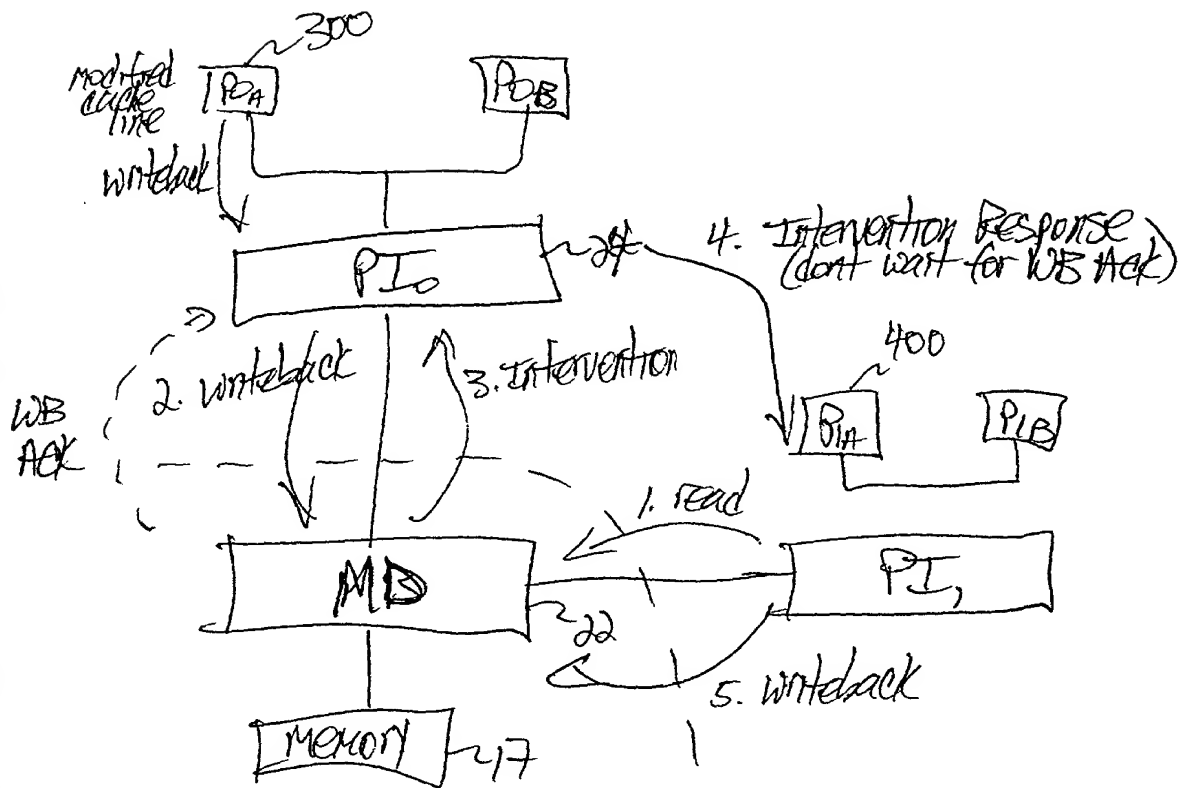 300
modified
cache
line
P0A
P0B
writeback
PI0
24
4. Intervention Response
(dont wait for WB Ack)
400
2. writeback
3. Intervention
WB
ACK
P1A
P1B
1. read
MD
PI1
22
5. writeback
memory
17